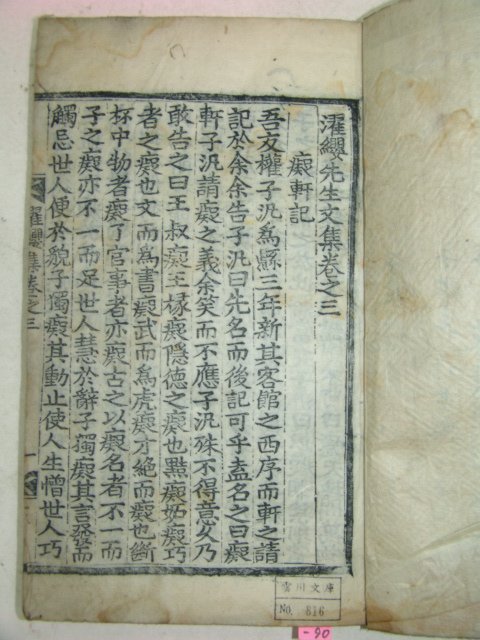 濯纓先生文集卷之三
癡軒記
吾友權子汎爲縣三年新其客館之西序而軒之請
記於余余告子汎曰先名而後記可乎盍名之曰癡
軒子汎請癡之義余笑而不應子汎殊不得意久乃
敢告之曰王叔癡王掾癡隱德之癡也黠癡妬癡巧
者之癡也文而爲書癡武而爲虎癡才絕而癡也斷
杯中物者癡了官事者亦癡古之以癡名者不一而
子之癡亦不一而足世人慧於辭子獨癡其言發而
觸忌世人便於貌子獨癡其動止使人生憎世人巧
濯纓集卷之三
一
雲川文庫
No. 816
-90